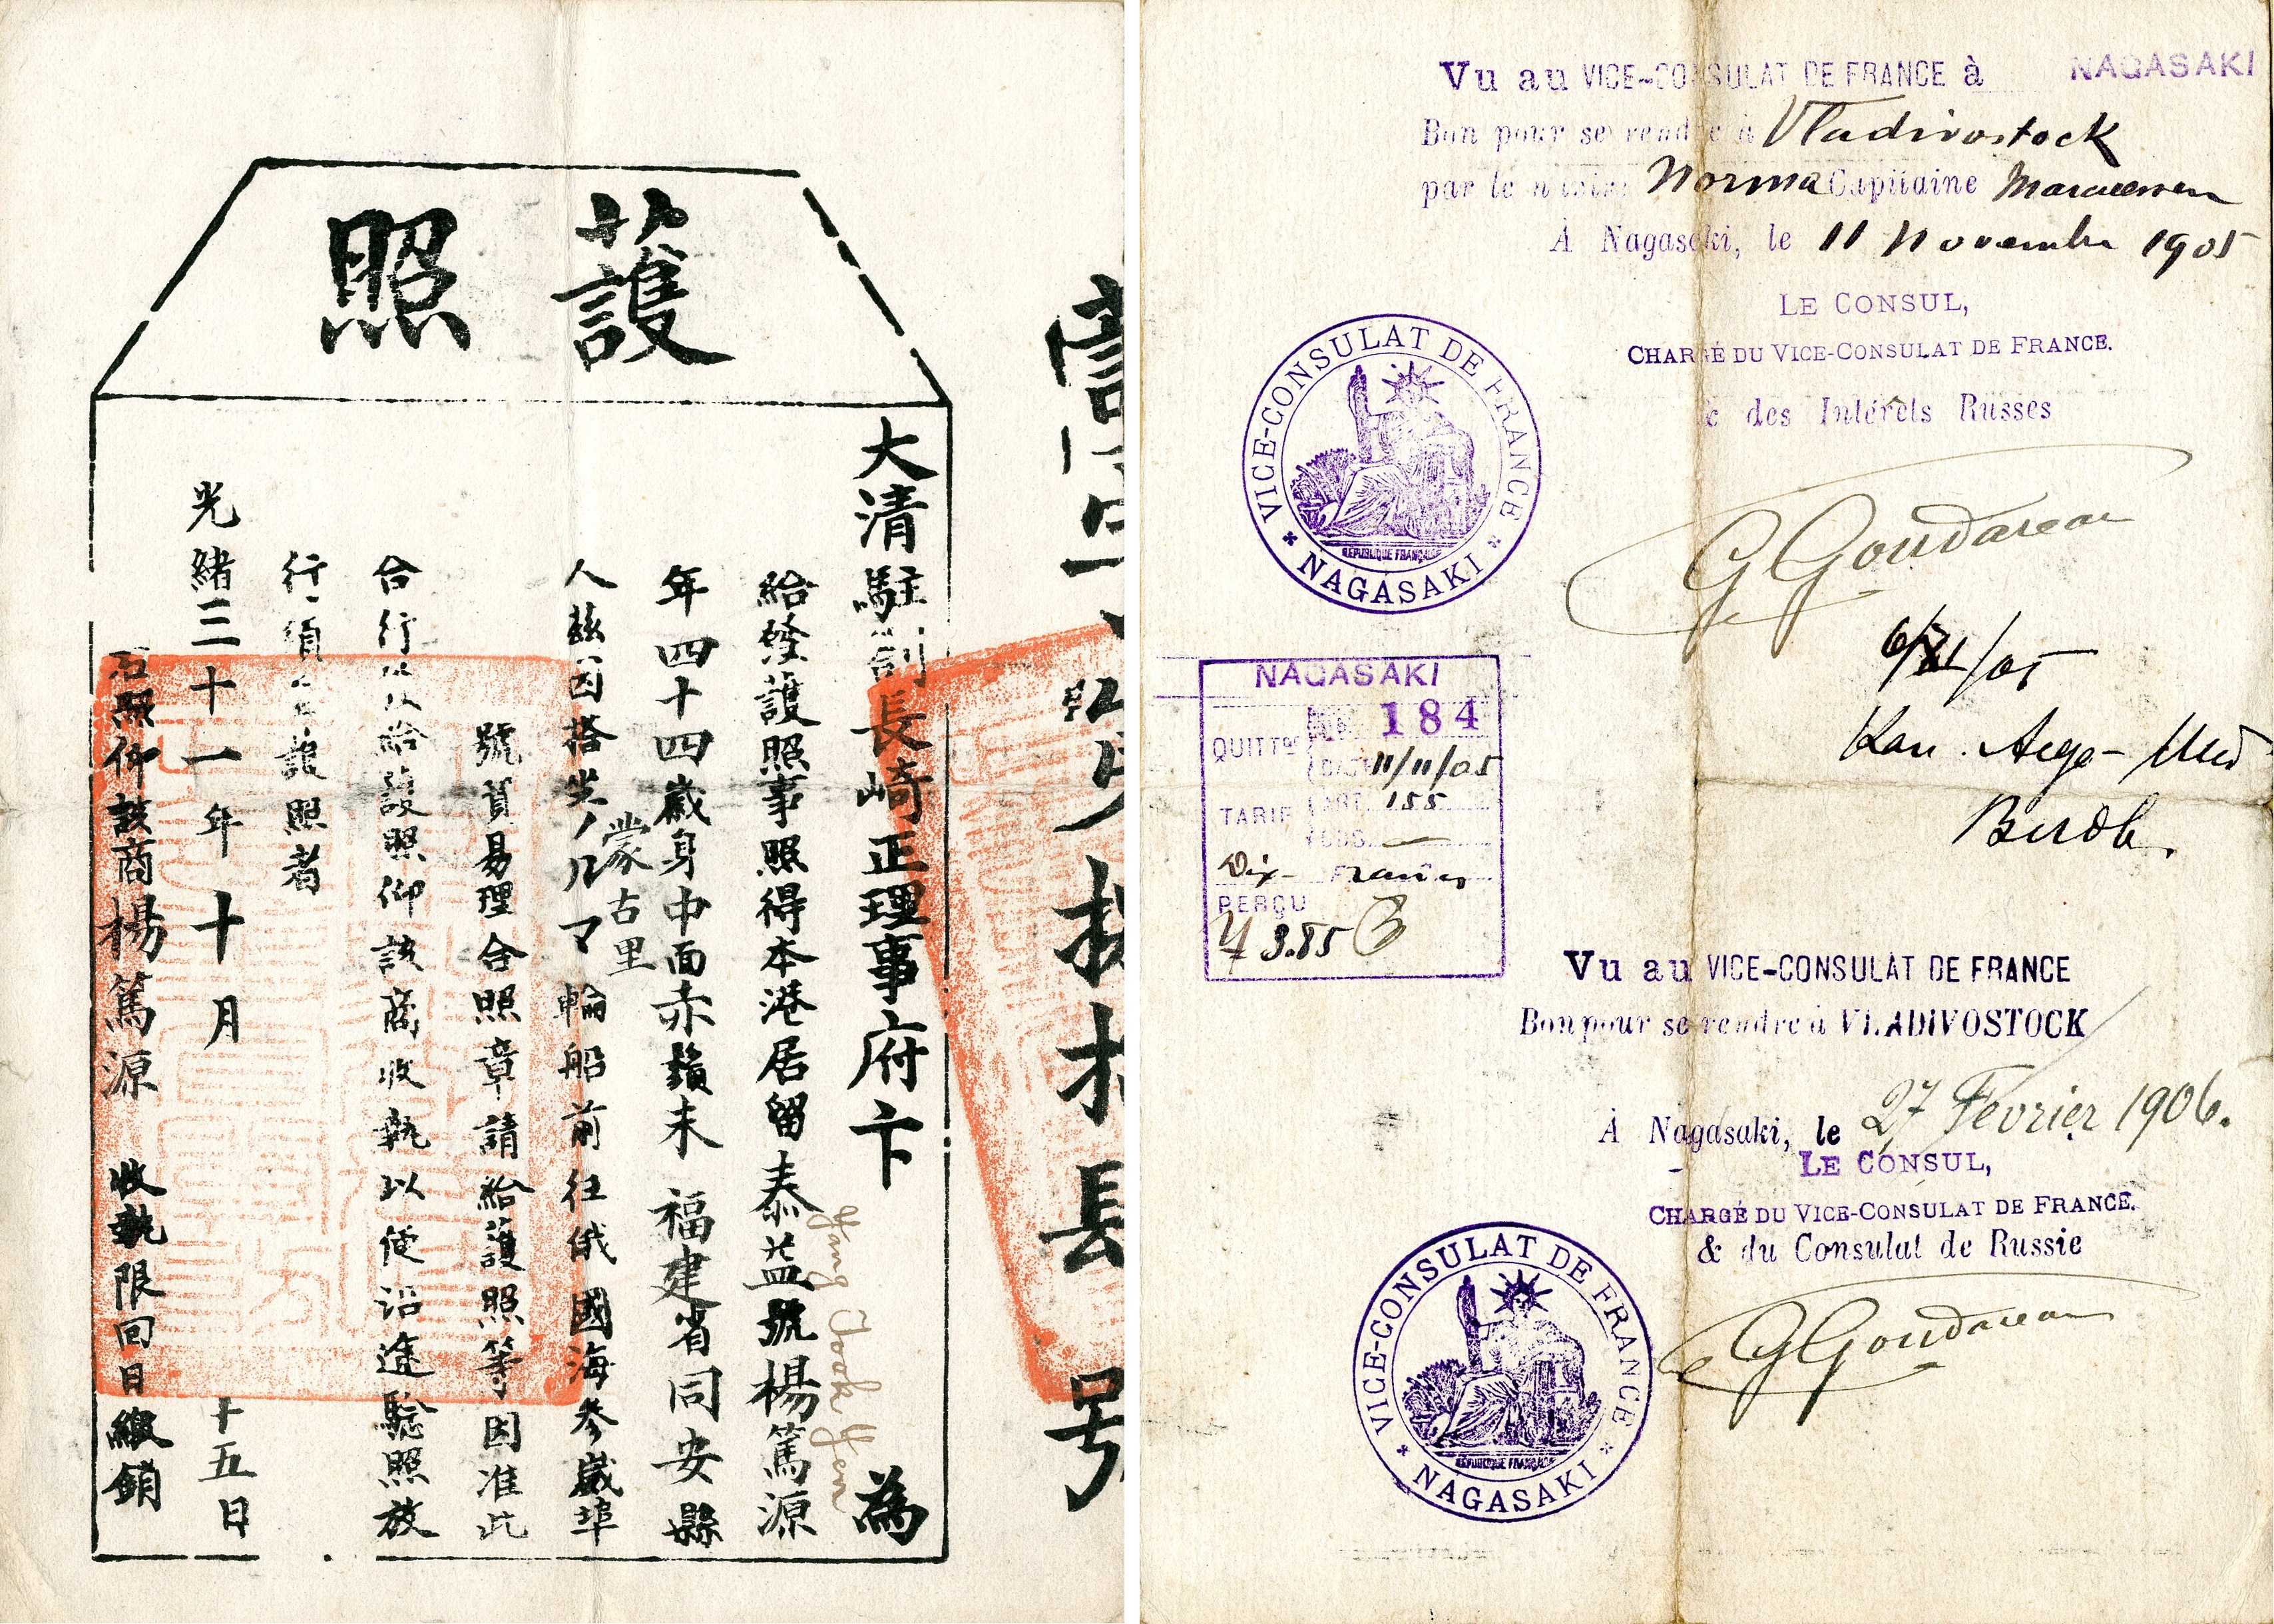 護照
大清駐劄長崎正理事府卞 為
給發護照事照得本港居留泰益號楊篤源
Yang Took Yen
年四十四歲身中面赤鬚未 福建省同安縣
蒙古里
人茲因搭坐ノルマ輪船前往俄國海參崴埠
號貿易理合照章請給護照等因准此
合行 給護照仰該商收執以便沿途驗照放
行須 護照者
光緒三十一年十月 十五日
右照仰該商楊篤源 收執限回日繳銷
長 号
Vu au VICE-CONSULAT DE FRANCE à NAGASAKI
Bon pour se rendre à Vladivostock
par le navire Norma Capitaine
À Nagasaki, le 11 Novembre 1905
LE CONSUL,
CHARGÉ DU VICE-CONSULAT DE FRANCE.
& des Intérêts Russes
VICE-CONSULAT DE FRANCE
RÉPUBLIQUE FRANÇAISE
NAGASAKI
G Goudareau
/05
NAGASAKI
QUITTce No 184
DATE 11/11/05
TARIF ART. 155
Dix Francs
PERÇU
¥ 3.85
Vu au VICE-CONSULAT DE FRANCE
Bon pour se rendre à VLADIVOSTOCK
À Nagasaki, le 27 Février 1906.
LE CONSUL,
CHARGÉ DU VICE-CONSULAT DE FRANCE.
& du Consulat de Russie
VICE-CONSULAT DE FRANCE
RÉPUBLIQUE FRANÇAISE
NAGASAKI
G Goudareau